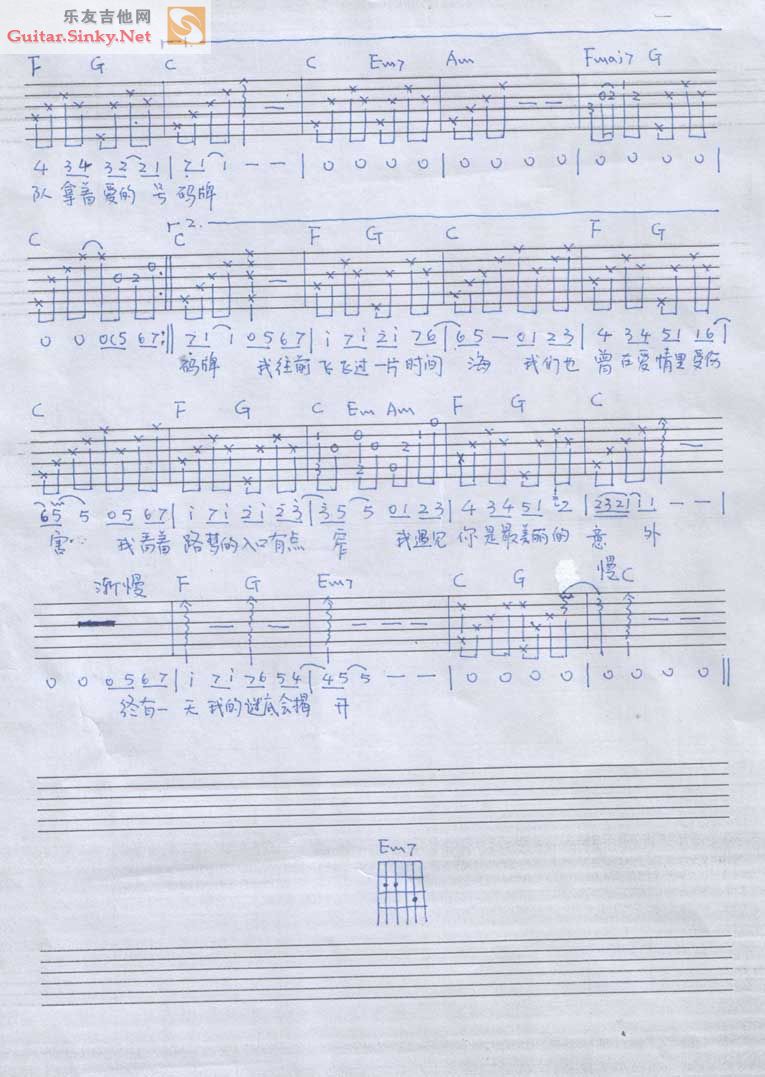 乐友吉他网
Guitar.Sinky.Net
F G C C Em7 Am Fmaj7 G
4 34 32 21 | 71 1 - - | 0 0 0 0 | 0 0 0 0 | 0 0 0 0 |
队 拿着 爱的 号 码牌
2.
C C F G C F G
0 0 005 67 :|| 71 1 05 67 | i 7i 2i 76 | 65 - 01 23 | 4 34 51 16 |
码牌 我往前 飞 飞过 一片 时间 海 我们也 曾在爱情里受伤
C F G C Em Am F G C
65 5 05 67 | i 7i 2i 23 | 35 5 01 23 | 4 34 51 12 | 2321 11 - - |
害 我看着 路梦的入口有点 窄 我遇见 你是最美丽的 意 外
渐慢 F G Em7 C G 慢C
0 0 05 67 | i 7i 76 54 | 45 5 - - | 0 0 0 0 | 0 0 0 0 ||
终有一 天 我的谜底会揭 开
Em7